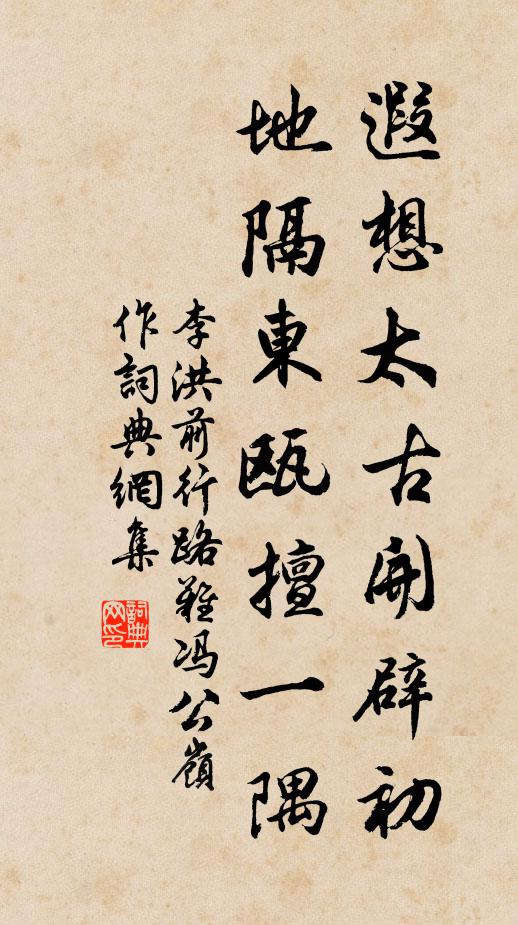 遐想太古開辟初
地隔東甌擅一隅
李洪前行路難馮公嶺
作詞典網集
詞典网印